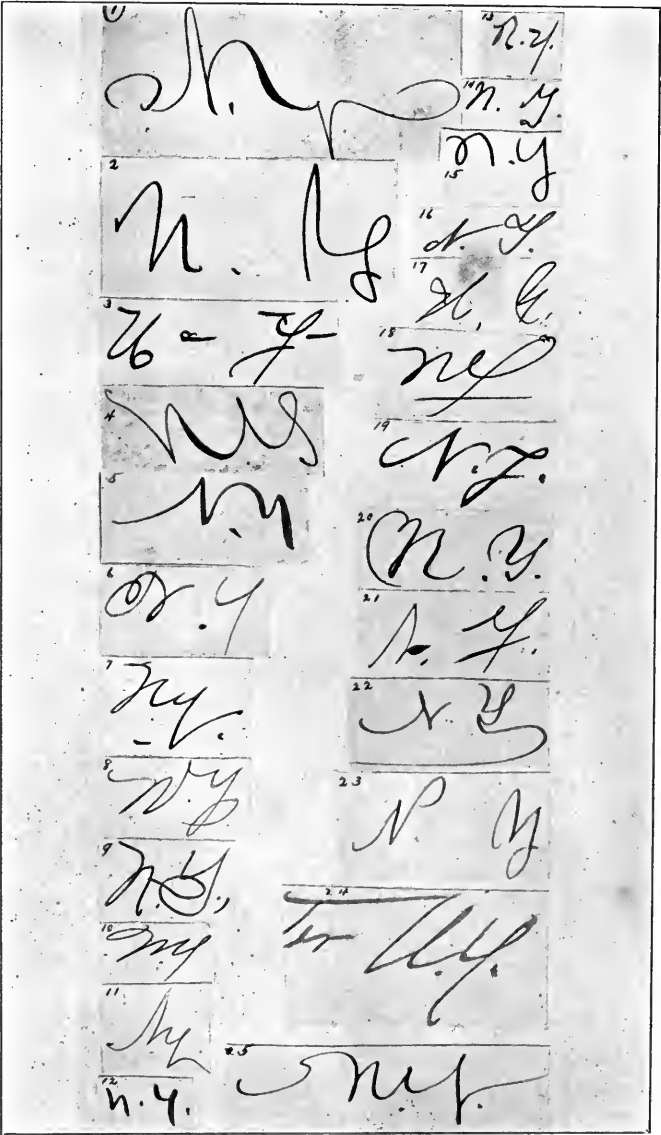 1
N. Y
2
N. Y
3
N - Y -
4
NY
5
N.Y
6
N.Y
7
N.Y.
8
N.Y
9
N.Y.,
10
NY
11
NY
12
N.Y.
13
N.Y.
14
N. Y.
15
N.Y
16
N. Y.
17
N. Y.
18
NY
19
N.Y.
20
N.Y.
21
N. Y.
22
N. Y
23
N. Y
24
N.Y.
25
NY.